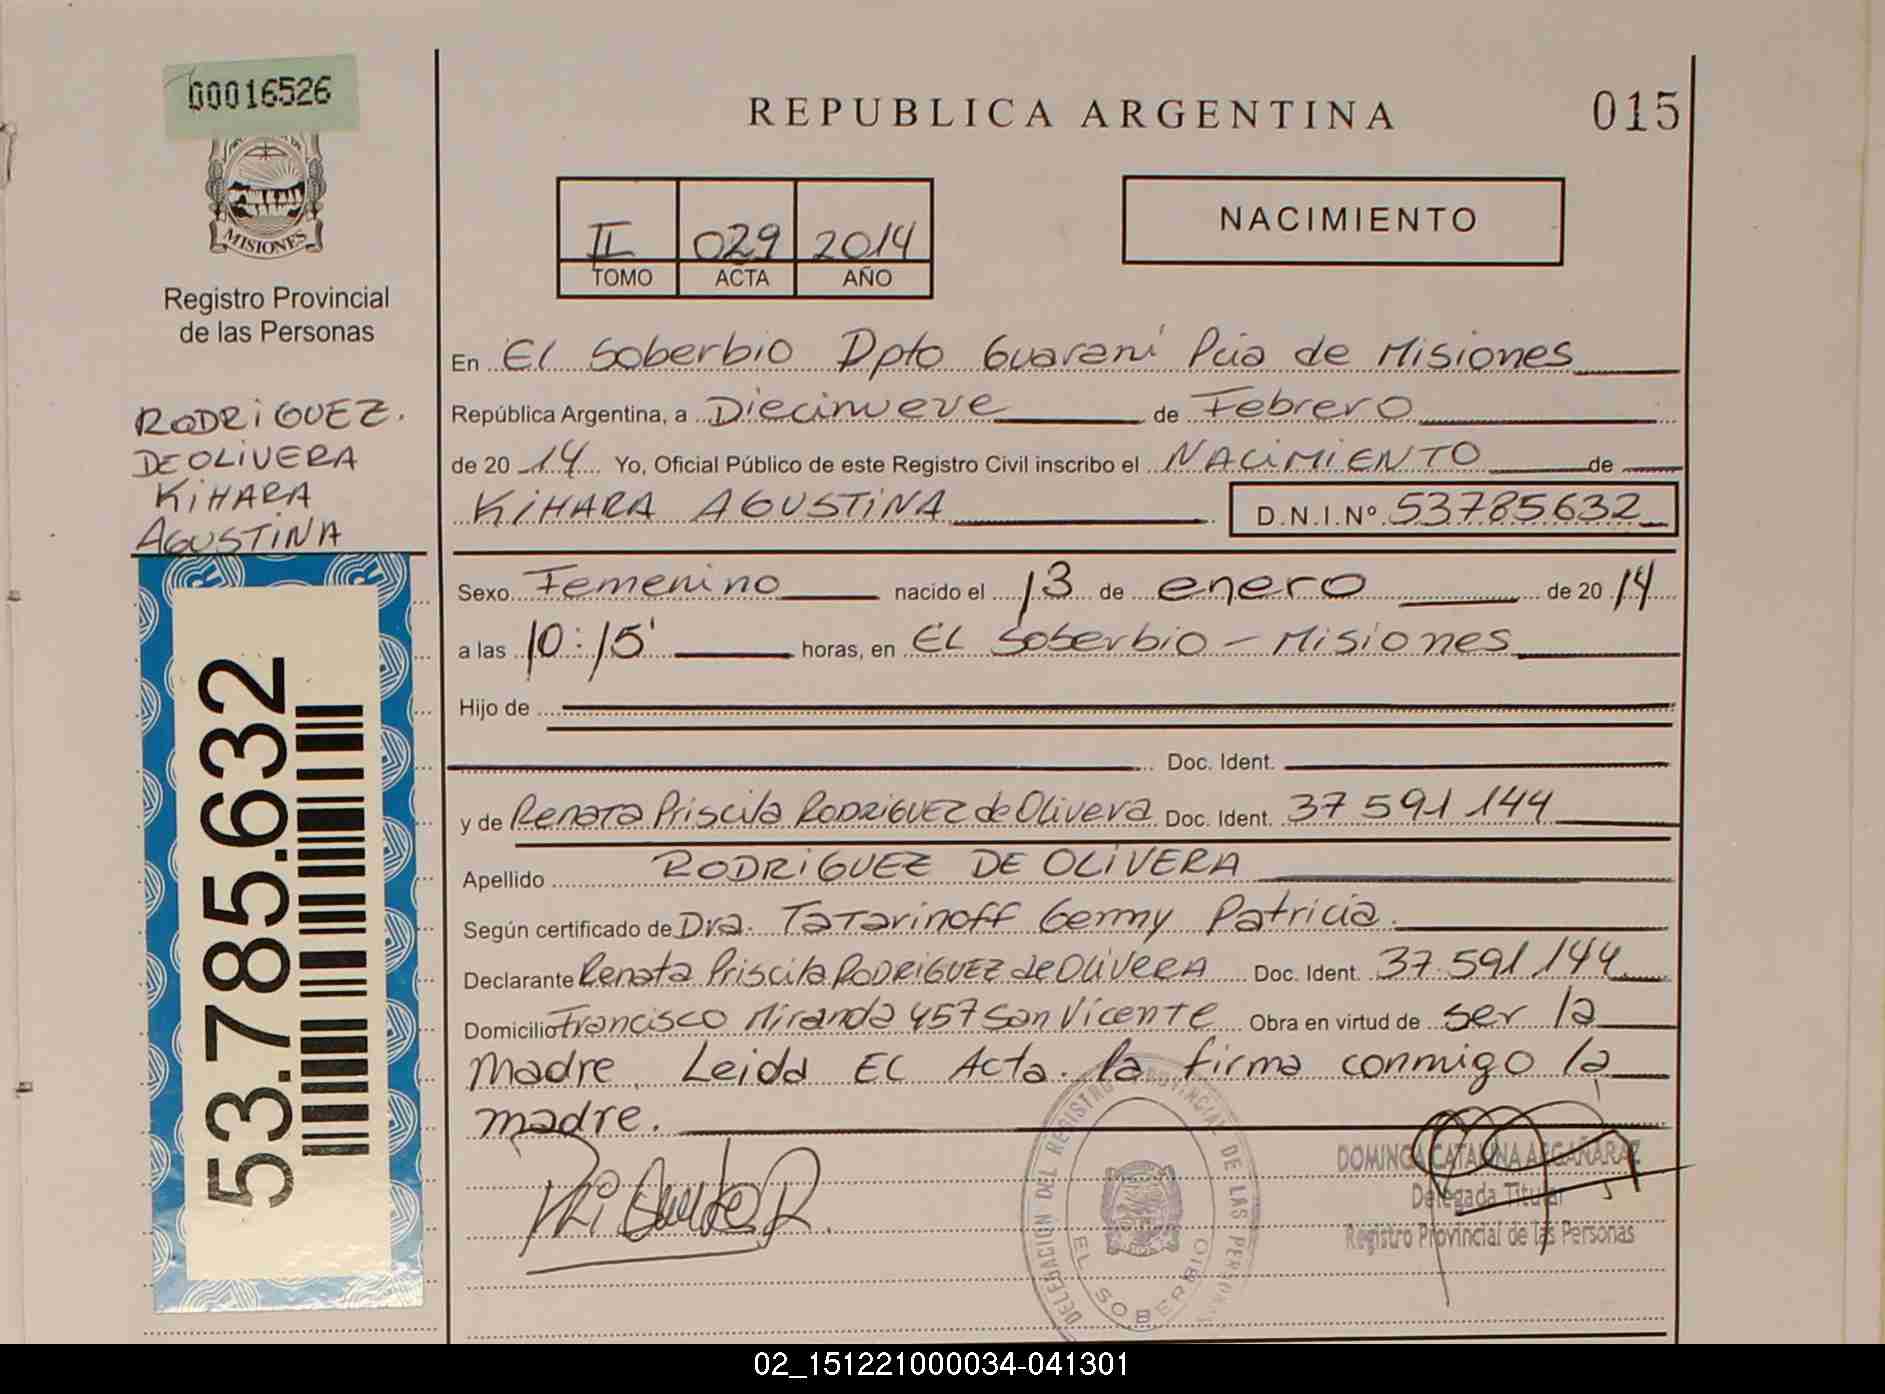 00016526
MISIONES
Registro Provincial
de las Personas
RODRIGUEZ.
DE OLIVERA
KIHARA
AGUSTINA
53.785.632
REPUBLICA ARGENTINA
015
II 029 2014
TOMO ACTA AÑO
NACIMIENTO
En El Soberbio Dpto Guaraní Pcia de Misiones
República Argentina, a Diecinueve de Febrero
de 2014 Yo, Oficial Público de este Registro Civil inscribo el NACIMIENTO de
KIHARA AGUSTINA D.N.I.Nº 53785632
Sexo Femenino nacido el 13 de enero de 2014
a las 10:15' horas, en EL Soberbio - Misiones
Hijo de
Doc. Ident.
y de Renata Priscila RODRIGUEZ de Olivera Doc. Ident. 37 591 144
Apellido RODRIGUEZ DE OLIVERA
Según certificado de Dra. Tatarinoff Genny Patricia.
Declarante Renata Priscila RODRIGUEZ de OLIVERA Doc. Ident. 37 591 144
Domicilio Francisco Miranda 457 San Vicente Obra en virtud de ser la
madre. Leida EL Acta. la firma conmigo la
madre.
DELEGACIÓN DEL REGISTRO PROVINCIAL DE LAS PERSONAS
EL SOBERBIO
DOMINGA CATALINA ARGAÑARAZ
Delegada Titular
Registro Provincial de las Personas
02_151221000034-041301